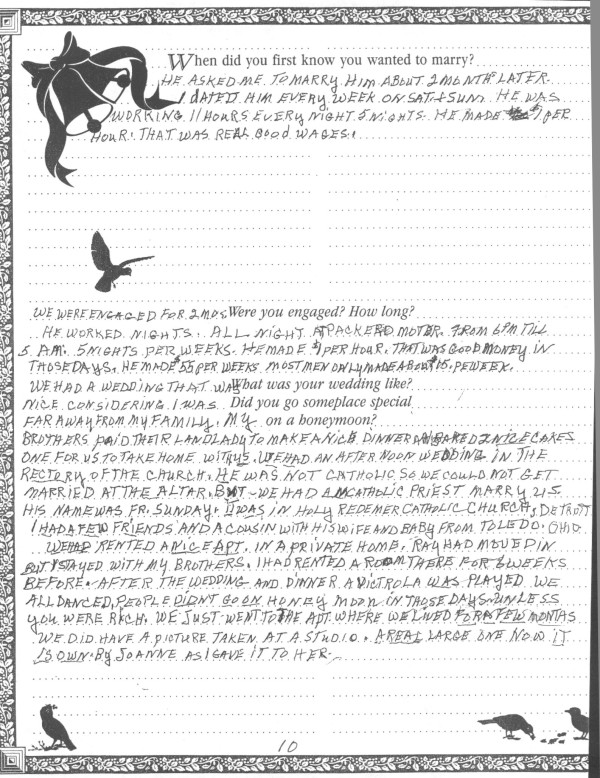 When did you first know you wanted to marry?
HE ASKED ME TO MARRY HIM ABOUT 2 MONTH LATER.
I DATED HIM EVERY WEEK ON SAT & SUN. HE WAS
WORKING 11 HOURS EVERY NIGHT 5 NIGHTS. HE MADE $1 PER
HOUR. THAT WAS REAL GOOD WAGES.
WE WERE ENGAGED FOR 2 MOS. Were you engaged? How long?
HE WORKED NIGHTS. ALL NIGHT AT PACKERD MOTER. FROM 6 PM TILL
5 AM. 5 NIGHTS PER WEEKS. HE MADE $1 PER HOUR. THAT WAS GOOD MONEY IN
THOSE DAYS. HE MADE $55 PER WEEKS MOST MEN ONLY MADE ABOUT $15. PE WEEK.
WE HAD A WEDDING THAT WAS What was your wedding like?
NICE CONSIDERING I WAS Did you go someplace special
FAR AWAY FROM MY FAMILY. MY on a honeymoon?
BROTHERS PAID THEIR LANDLADY TO MAKE A NICE DINNER BAKED 2 NICE CAKES
ONE FOR US TO TAKE HOME WITH US. WE HAD AN AFTER NOON WEDDING IN THE
RECTORY OF THE CHURCH. HE WAS NOT CATHOLIC SO WE COULD NOT GET
MARRIED AT THE ALTAR. BUT WE HAD A CATHOLIC PRIEST MARRY US
HIS NAME WAS FR. SUNDAY. IT WAS IN HOLY REDEMER CATHOLIC CHURCH, DETROIT
I HAD A FEW FRIENDS AND A COUSIN WITH HIS WIFE AND BABY FROM TOLEDO. OHIO.
WE HAD RENTED A NICE APT. IN A PRIVATE HOME, RAY HAD MOVED IN
BUT I STAYED WITH MY BROTHERS. I HAD RENTED A ROOM THERE FOR 6 WEEKS
BEFORE. AFTER THE WEDDING AND DINNER A VICTROLA WAS PLAYED WE
ALL DANCED, PEOPLE DIDNT GO ON HONEY MOON IN THOSE DAYS. UNLESS
YOU WERE RICH. WE JUST WENT TO THE APT. WHERE WE LIVED FOR A FEW MONTHS
WE DID HAVE A PICTURE TAKEN AT A STUDIO. A REAL LARGE ONE NOW IT
IS OWN. BY JOANNE AS I GAVE IT TO HER.
10